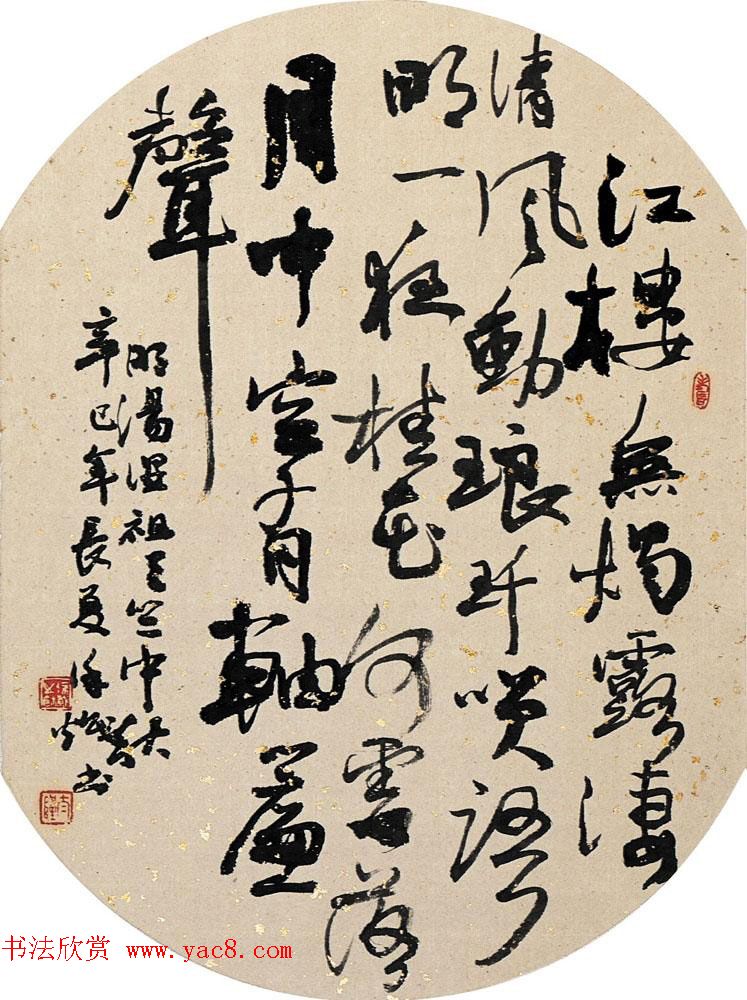 江樓無燭露淒
清風動琅玕笑語
明一夜桂花何處落
月中空有軸簾
聲
明湯顯祖天竺中秋
辛巳年長夏書
书法欣赏 www.yac8.com